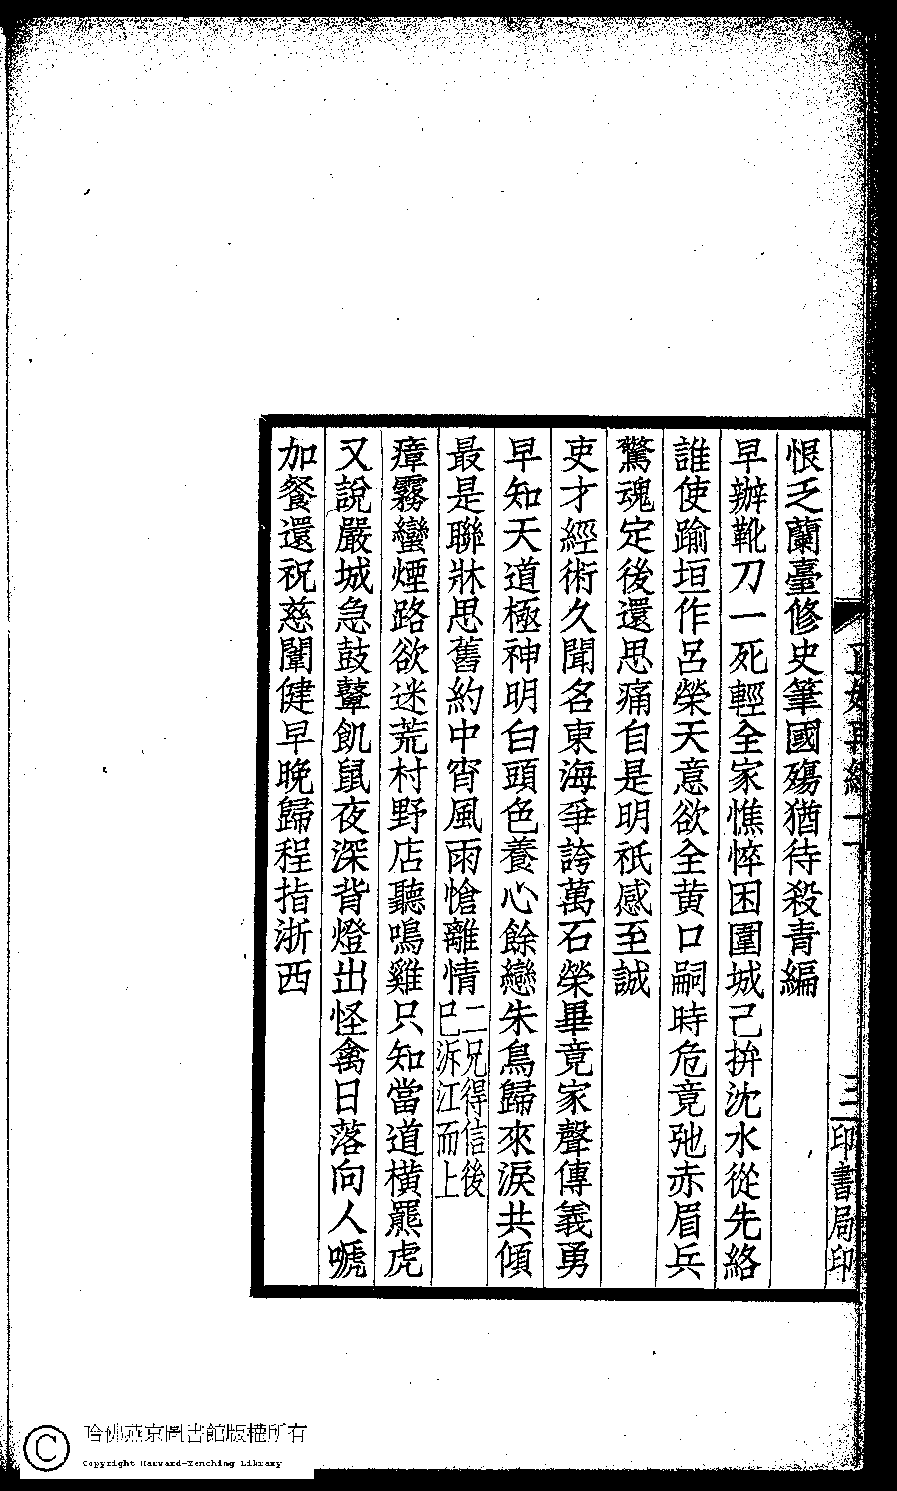 恨乏蘭臺修史筆國殤猶待殺青編
早辦靴刀一死輕全家憔悴困圍城己拚沈水從先絡
誰使踰垣作呂榮天意欲全黄口嗣時危竟弛赤眉兵
驚魂定後還思痛自是明祇感至誠
吏才經術久聞名東海爭誇萬石榮畢竟家聲傳義勇
早知天道極神明白頭色養心餘戀朱鳥歸來淚共傾
最是聯牀思舊約中宵風雨愴離情二兄得信後
已泝江而上
瘴霧蠻煙路欲迷荒村野店聽鳴雞只知當道橫羆虎
又說嚴城急鼓鼙飢鼠夜深背燈出怪禽日落向人嗁
加餐還祝慈闈健早晚歸程指浙西
三
印書局印
哈佛燕京圖書館版權所有
Copyright Harvard-Yenching Library